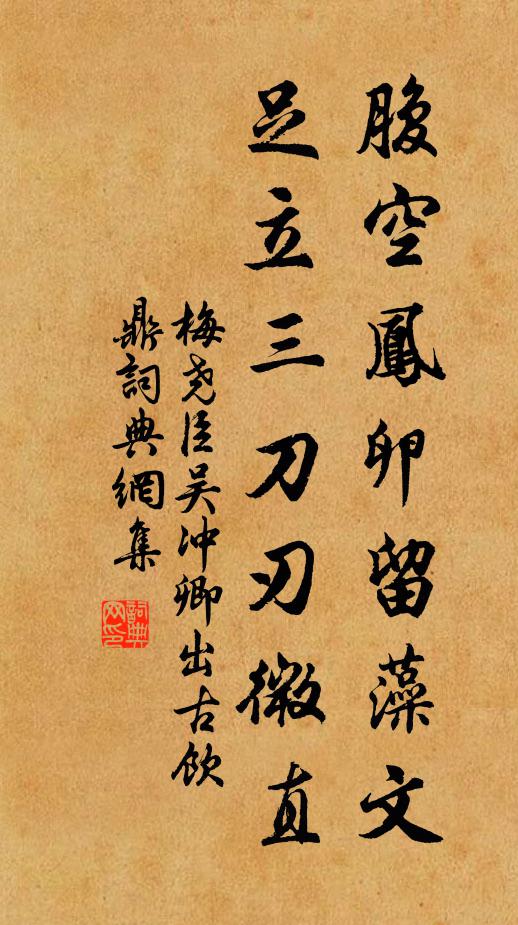 腹空鳳卵留藻文
足立三刀刃微直
梅尧臣吴冲卿出古飲
鼎詞典網集
詞典
网印